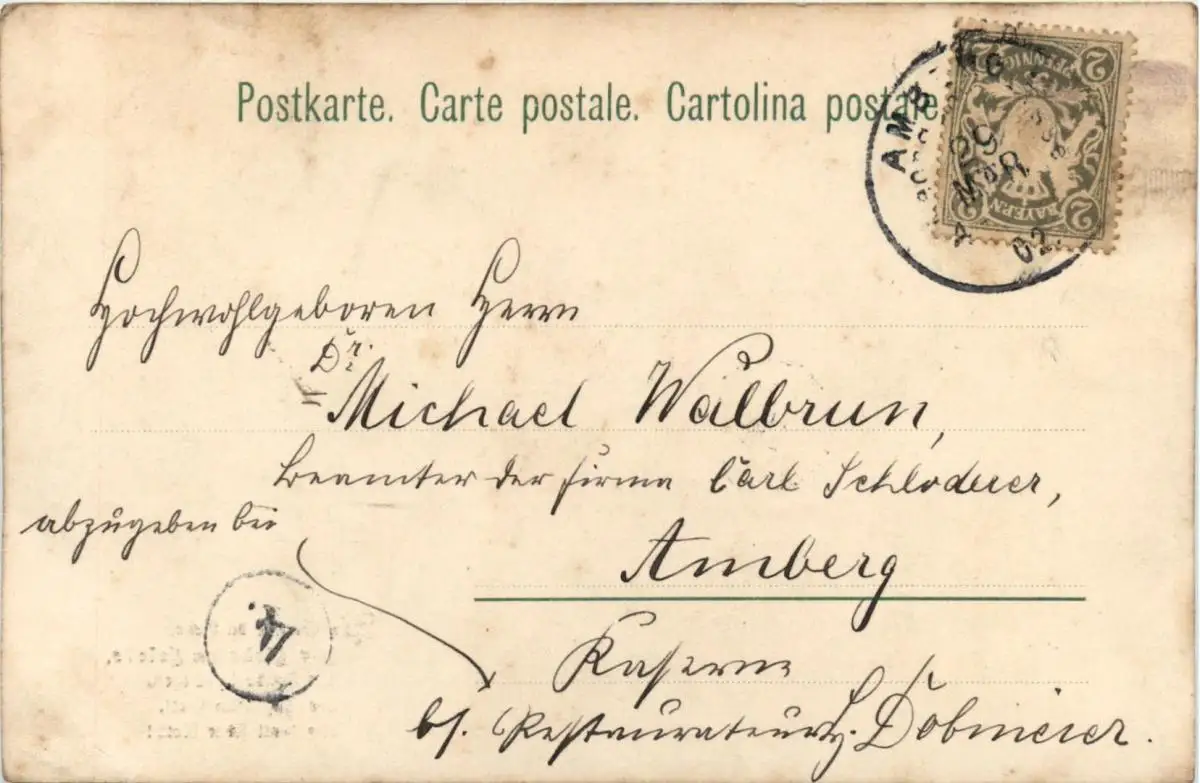 Postkarte. Carte postale. Cartolina postale.
2 2
PFENNIG
BAYERN
2 2
AMB
09
MÄR
02.
Hochwohlgeboren Herrn
Dr.
Michael Walbrun,
Beamter der Firma Carl Schloderer,
abzugeben bei
Amberg
4.
Kaserne
bf. Restaurateur H. Dobmeier.